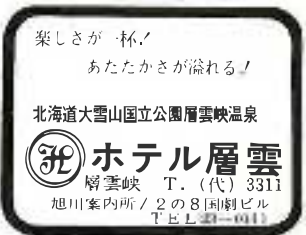 楽しさが一杯！
あたたかさが溢れる！
北海道大雪山国立公園層雲峡温泉
ホテル層雲
層雲峡 T.(代) 3311
旭川案内所/2の8国劇ビル
TEL